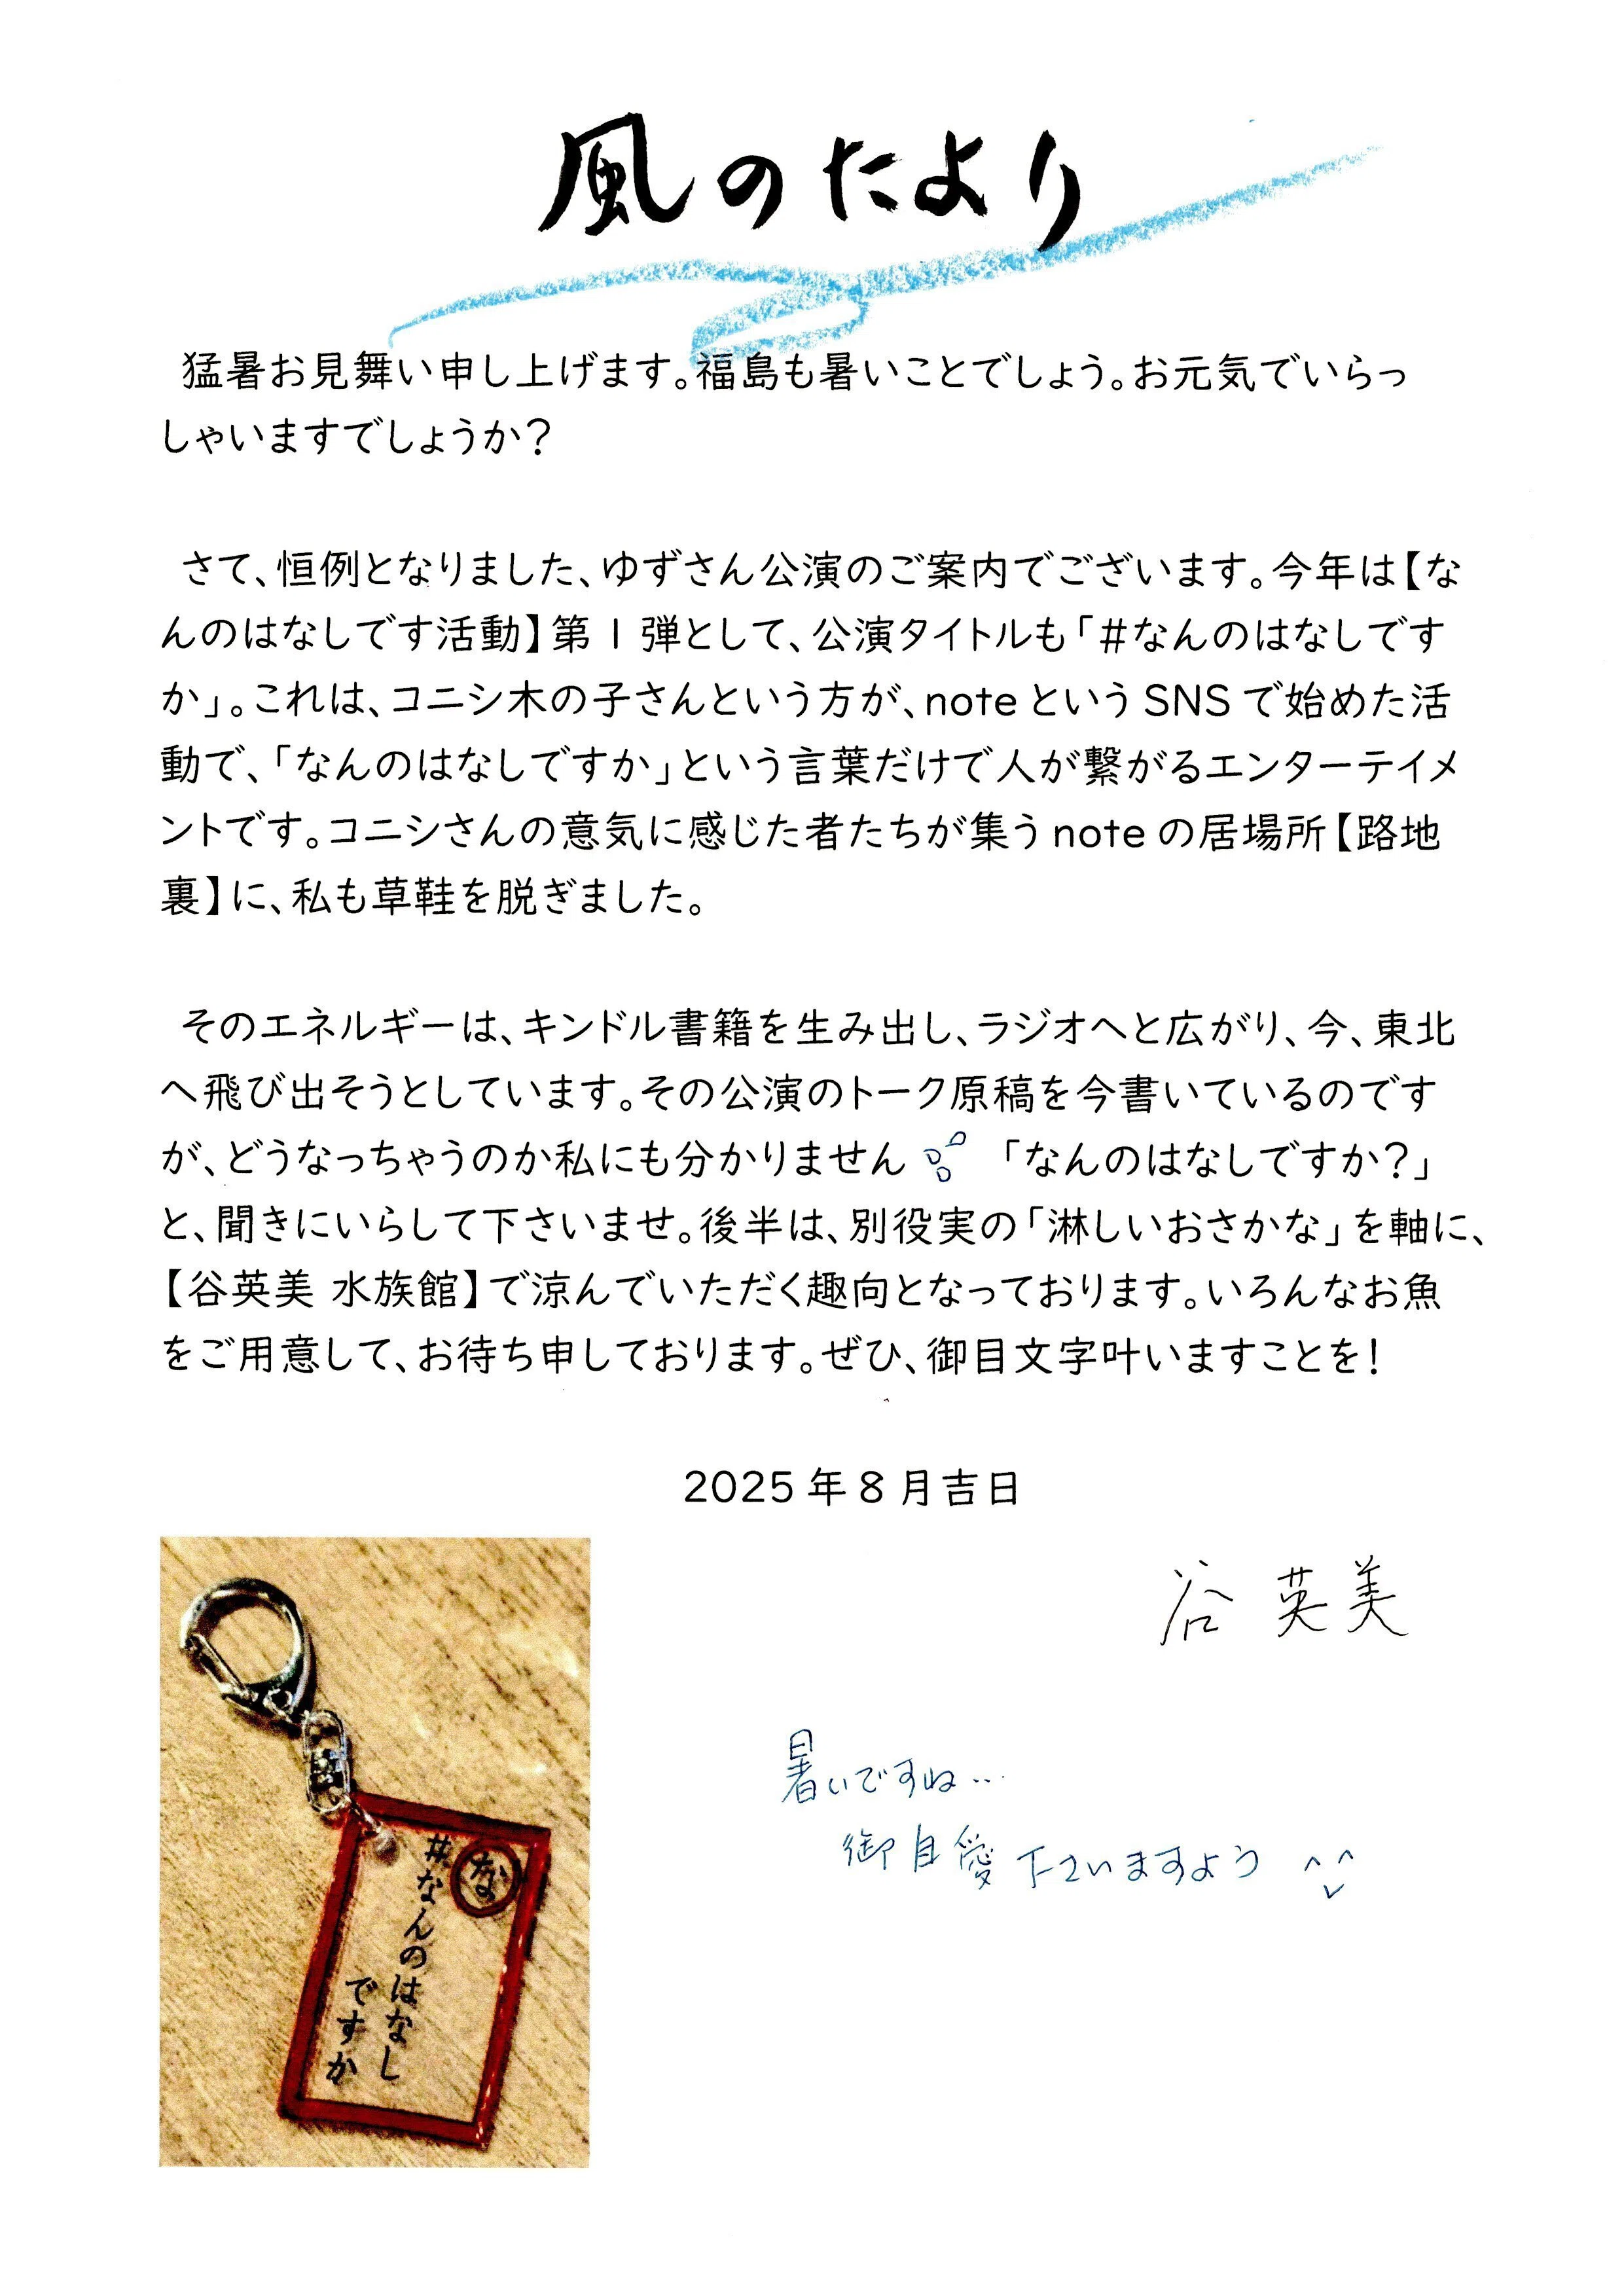 風のたより
猛暑お見舞い申し上げます。福島も暑いことでしょう。お元気でいらっ
しゃいますでしょうか？
さて、恒例となりました、ゆずさん公演のご案内でございます。今年は【な
んのはなしです活動】第１弾として、公演タイトルも「＃なんのはなしです
か」。これは、コニシ木の子さんという方が、noteというSNSで始めた活
動で、「なんのはなしですか」という言葉だけで人が繋がるエンターテイメ
ントです。コニシさんの意気に感じた者たちが集うnoteの居場所【路地
裏】に、私も草鞋を脱ぎました。
そのエネルギーは、キンドル書籍を生み出し、ラジオへと広がり、今、東北
へ飛び出そうとしています。その公演のトーク原稿を今書いているのです
が、どうなっちゃうのか私にも分かりません 「なんのはなしですか？」
と、聞きにいらして下さいませ。後半は、別役実の「淋しいおさかな」を軸に、
【谷英美 水族館】で涼んでいただく趣向となっております。いろんなお魚
をご用意して、お待ち申しております。ぜひ、御目文字叶いますことを！
2025年8月吉日
谷 英美
暑いですね…
御自愛下さいますよう ^^
な
#なんのはなし
ですか